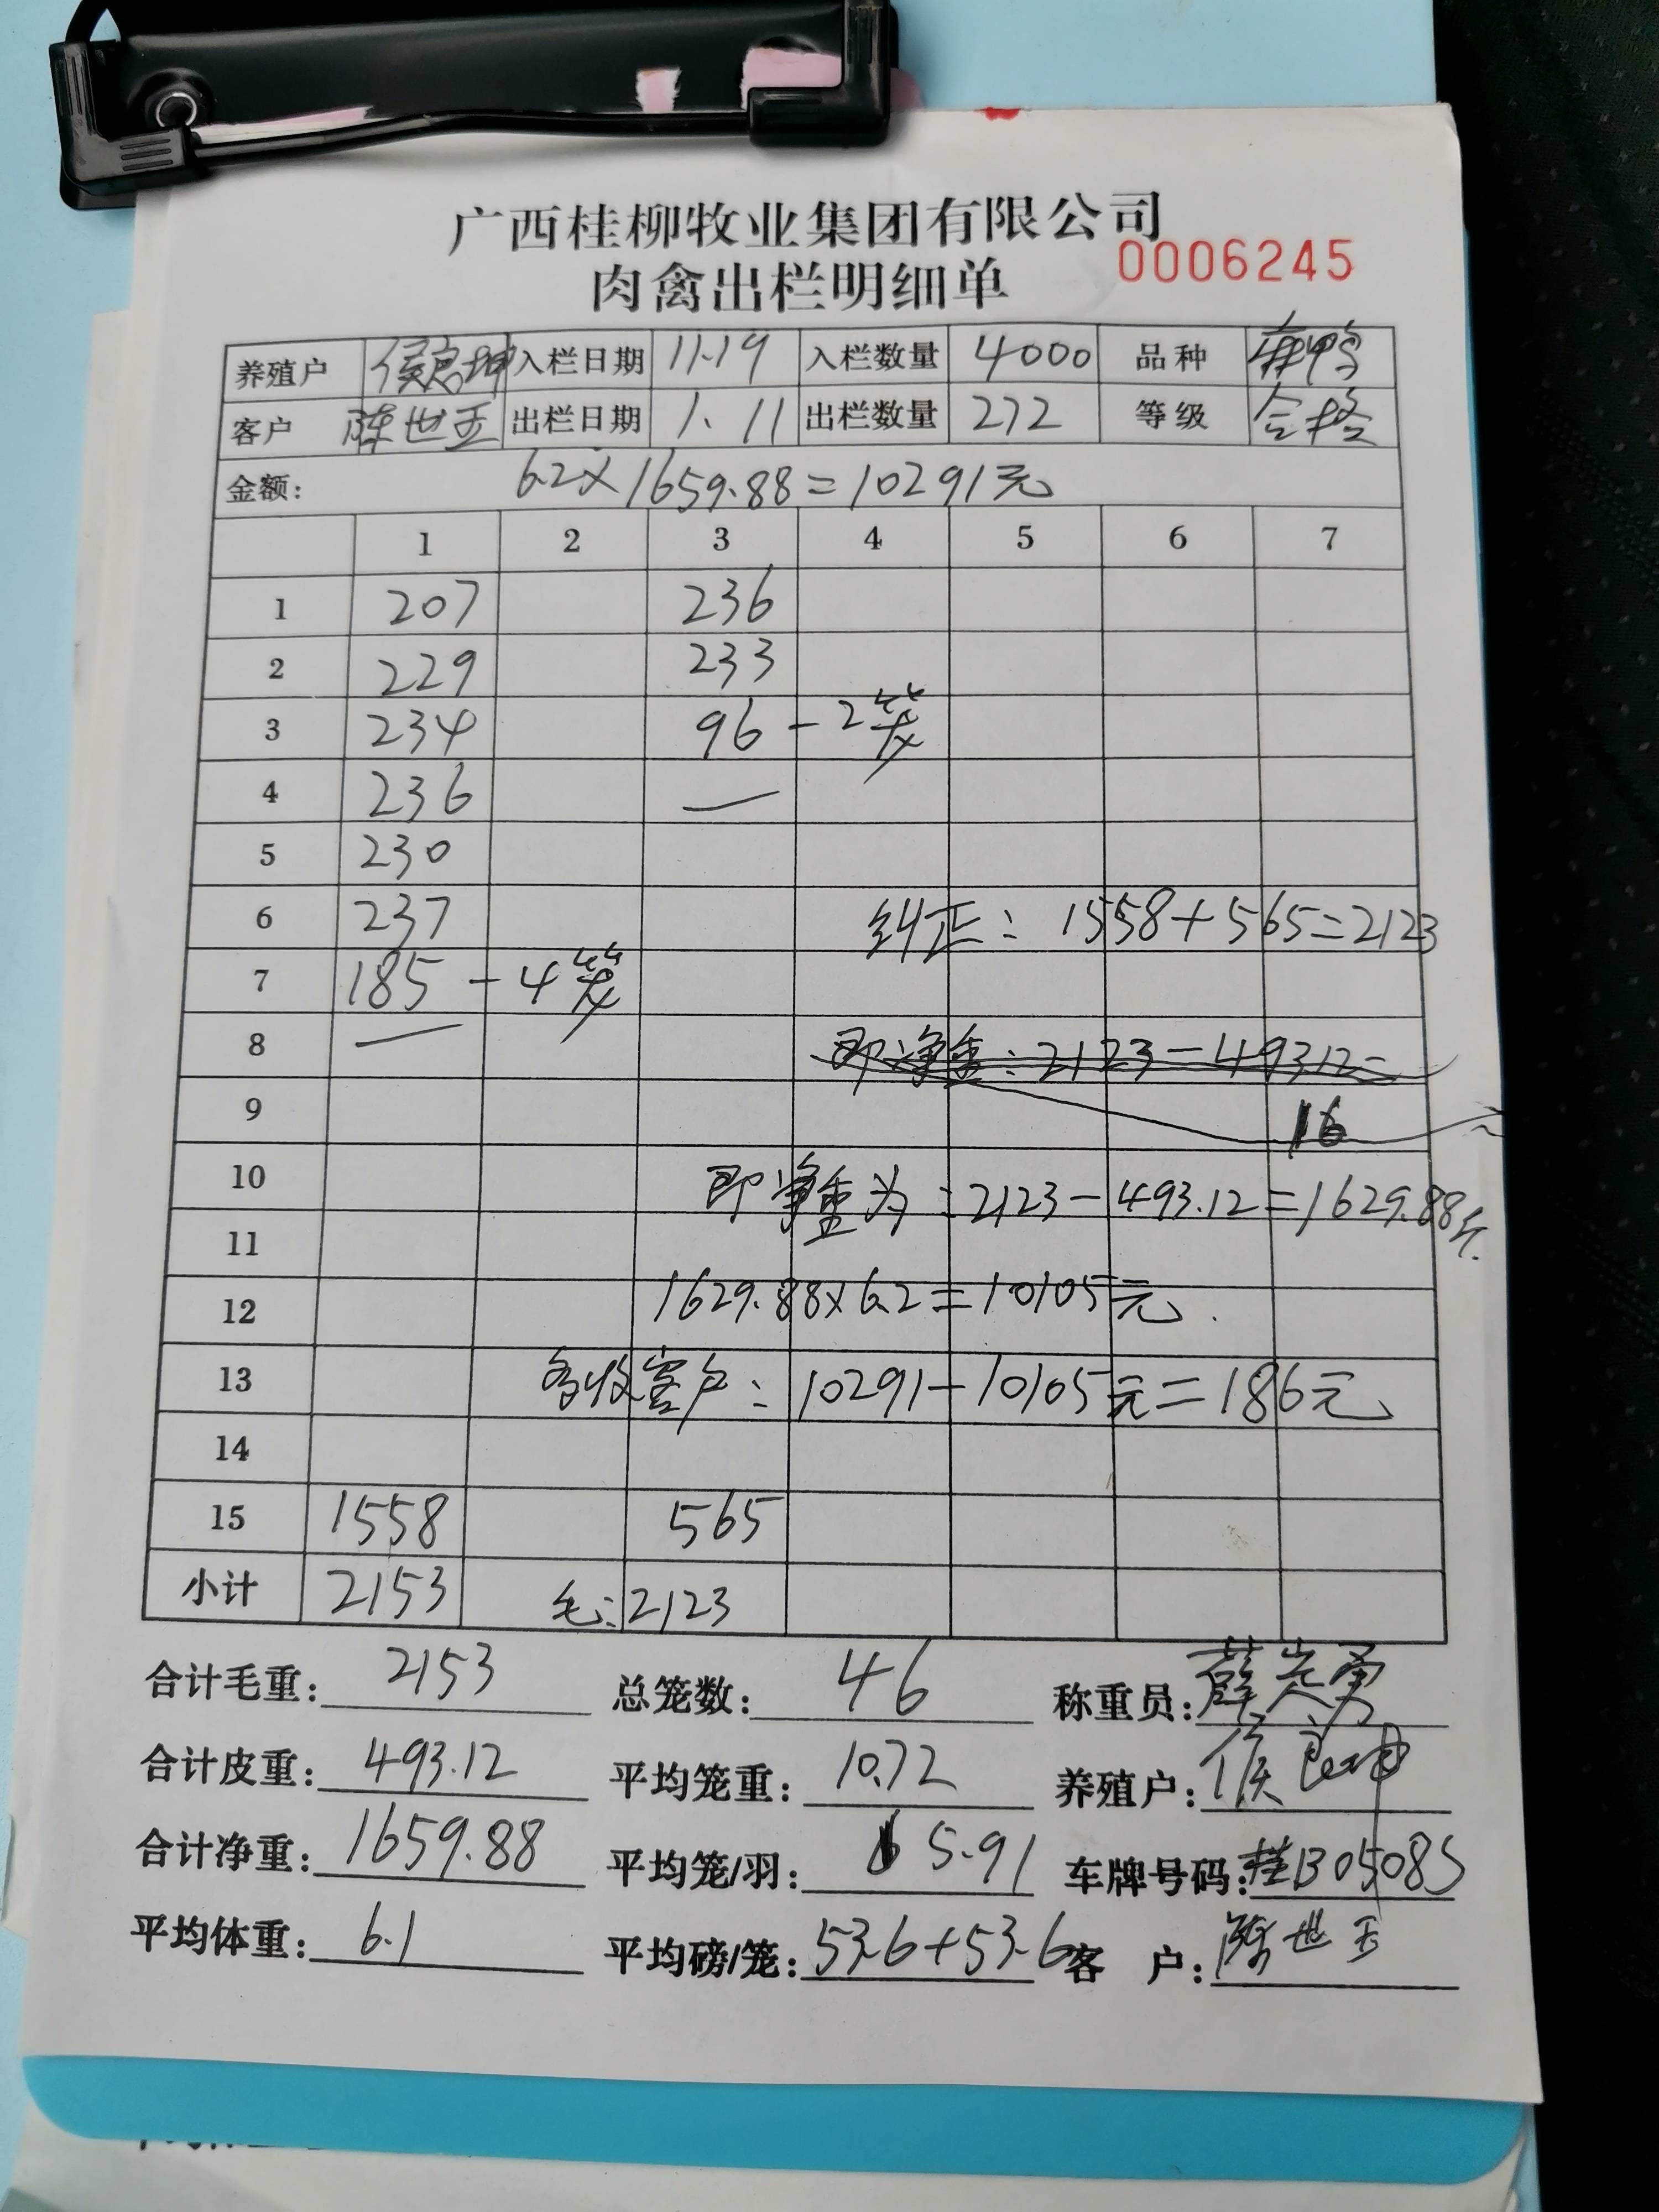 广西桂柳牧业集团有限公司
肉禽出栏明细单 0006245
养殖户 侯良坤 入栏日期 11.19 入栏数量 4000 品种 麻鸭
客户 陈世玉 出栏日期 1.11 出栏数量 272 等级 合格
金额: 6.2×1659.88=10291元
1 2 3 4 5 6 7
1 207 236
2 229 233
3 234 96-2笼
4 236
5 230
6 237 纠正: 1558+565=2123
7 185-4笼
8 即净重:2123-493.12=
9 16
10 即净重为:2123-493.12=1629.88斤.
11
12 1629.88×6.2=10105元.
13 多收客户:10291-10105元=186元
14
15 1558 565
小计 2153 毛:2123
合计毛重: 2153 总笼数: 46 称重员: 薛 勇
合计皮重: 493.12 平均笼重: 10.72 养殖户: 侯良坤
合计净重: 1659.88 平均笼/羽: 5.91 车牌号码: 桂B05085
平均体重: 6.1 平均磅/笼: 53.6+53.6 客 户: 陈世玉